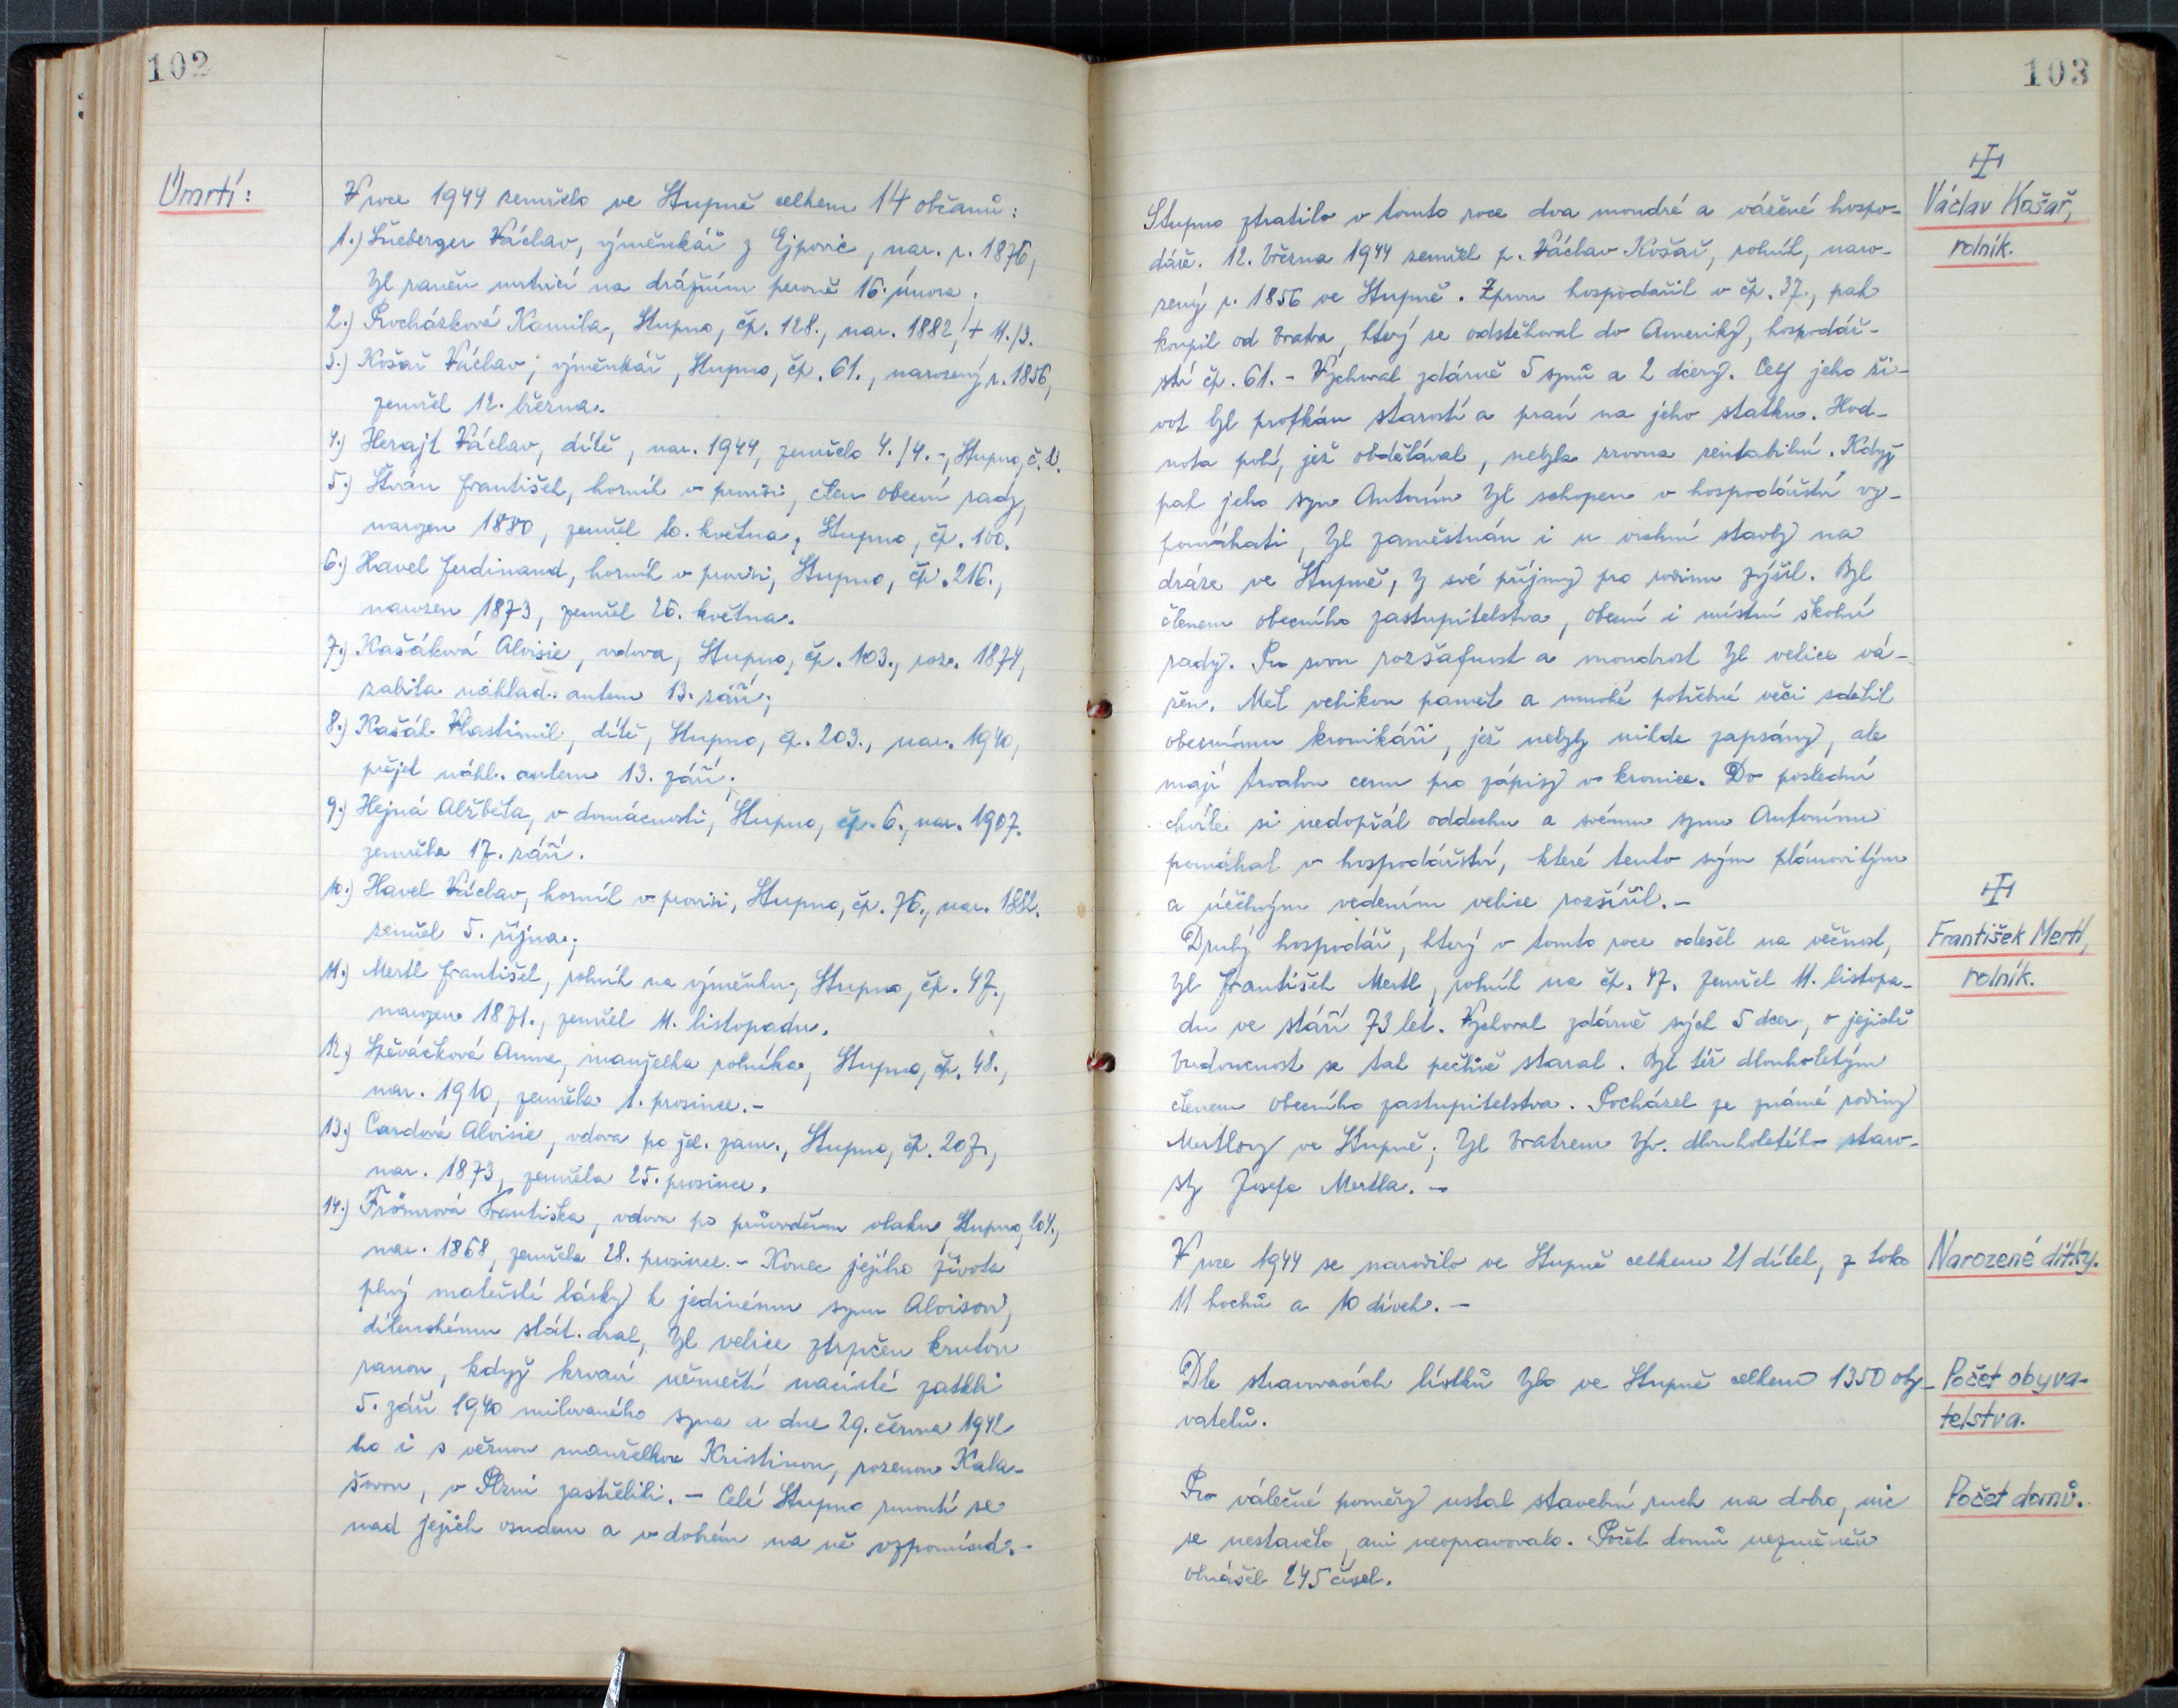 102
Úmrtí:
V roce 1944 zemřelo ve Stupně celkem 14 občanů:
1.) Šneberger Václav, výměnkář z Ejpovic, nar. r. 1876,
byl raněn mrtvicí na drážním peroně 16. února.
2.) Procházková Kamila, Stupno, čp. 128., nar. 1882, + 11./3.
3.) Košař Václav, výměnkář, Stupno, čp. 61., narozený r. 1856,
zemřel 12. března.
4.) Herajt Václav, dítě, nar. 1944, zemřelo 4./4. -, Stupno, č. 2.
5.) Štván František, horník v provisi, člen obecní rady,
narozen 1880, zemřel 10. května, Stupno, čp. 100.
6.) Havel Ferdinand, horník v provisi, Stupno, čp. 216.,
narozen 1873, zemřel 26. května.
7.) Kašáková Aloisie, vdova, Stupno, čp. 103., roz. 1874,
zabita náklad. autem 13. září;
8.) Kašák Vlastimil, dítě, Stupno, čp. 203., nar. 1940,
přejet nákl. autem 13. září.
9.) Hejná Alžběta, v domácnosti, Stupno, čp. 6., nar. 1907.
zemřela 17. září.
10.) Havel Václav, horník v provisi, Stupno, čp. 76., nar. 1882.
zemřel 5. října;
11.) Mertl František, rolník na výměnku, Stupno, čp. 47.,
narozen 1871., zemřel 11. listopadu.
12.) Spěváčková Anna, manželka rolníka, Stupno, čp. 48.,
nar. 1910, zemřela 1. prosince. -
13.) Cardová Aloisie, vdova po žel. zam., Stupno, čp. 207,
nar. 1873, zemřela 25. prosince.
14.) Františka, vdova po průvodčím vlaku, Stupno, 104.,
nar. 1868, zemřela 28. prosince. - Konec jejího života
plný mateřské lásky k jedinému synu Aloisovi,
dílenskému stát. drah, byl velice ztrpčen krutou
ranou, když krvaví němečtí nacisté zatkli
5. září 1940 milovaného syna a dne 29. června 1942
ho i s věrnou manželkou Kristinou, rozenou Kala-
šovou, v Plzni zastřelili. - Celé Stupno rmoutí se
nad jejich osudem a v dobrém na ně vzpomíná. -
103
Stupno ztratilo v tomto roce dva moudré a vážené hospo-
dáře. 12. března 1944 zemřel p. Václav Košař, rolník, naro-
zený r. 1856 ve Stupně. Zprvu hospodařil v čp. 37., pak
koupil od bratra, který se odstěhoval do Ameriky, hospodář-
ství čp. 61. - Vychoval zdárně 5 synů a 2 dcery. Celý jeho ži-
vot byl protkán starostí a prací na jeho statku. Hod-
nota polí, jež obdělával, nebyla zrovna rentabilní. Když
pak jeho syn Antonín byl schopen v hospodářství vy-
pomáhati, byl zaměstnán i u vrchní stavby na
dráze ve Stupně, by své příjmy pro rodinu zvýšil. Byl
členem obecního zastupitelstva, obecní i místní školní
rady. Pro svou rozšafnost a moudrost byl velice vá-
žen. Měl velikou paměť a mnohé potřebné věci sdělil
obecnímu kronikáři, jež nebyly nikde zapsány, ale
mají trvalou cenu pro zápisy v kronice. Do poslední
chvíle si nedopřál oddechu a svému synu Antonínu
pomáhal v hospodářství, které tento svým plánovitým
a účelným vedením velice rozšířil. -
Druhý hospodář, který v tomto roce odešel na věčnost,
byl František Mertl, rolník na čp. 47. Zemřel 11. listopa-
du ve stáří 73 let. Vychoval zdárně svých 5 dcer, o jejichž
budoucnost se tak pečlivě staral. Byl též dlouholetým
členem obecního zastupitelstva. Pocházel ze známé rodiny
Mertlovy ve Stupně; byl bratrem býv. dlouholetého staro-
sty Josefa Mertla. -
V roce 1944 se narodilo ve Stupně celkem 21 dítek, z toho
11 hochů a 10 dívek. -
Dle stravovacích lístků bylo ve Stupně celkem 1350 oby-
vatelů.
Pro válečné poměry ustal stavební ruch na dobro, nic
se nestavělo, ani neopravovalo. Počet domů nezměněn
obnášel 245 čísel.
Václav Košař,
rolník.
František Mertl,
rolník.
Narozené dítky.
Počet obyva-
telstva.
Počet domů.